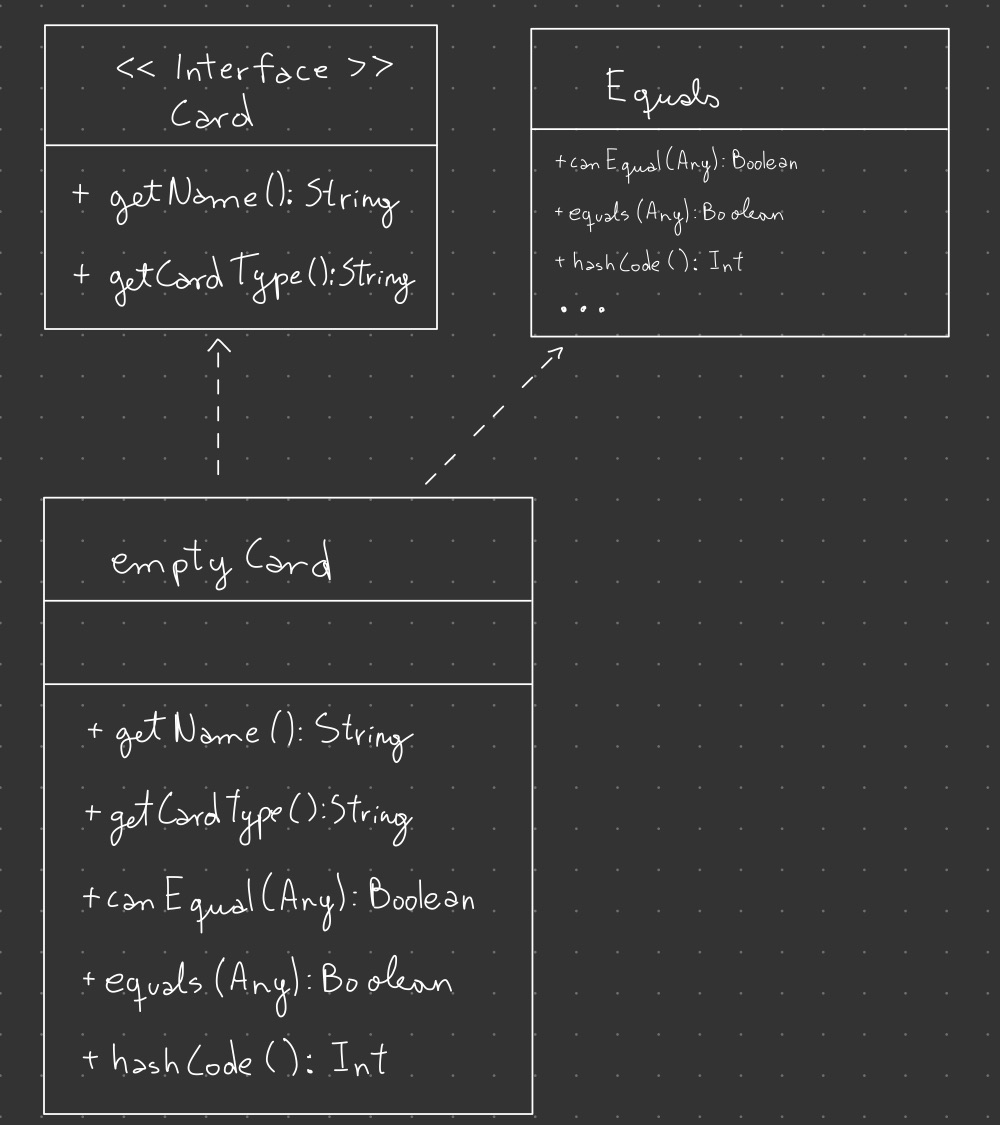 << Interface >>
Card
+ getName(): String
+ getCardType(): String
Equals
+ canEqual(Any): Boolean
+ equals(Any): Boolean
+ hashCode(): Int
...
emptyCard
+ getName(): String
+ getCardType(): String
+ canEqual(Any): Boolean
+ equals(Any): Boolean
+ hashCode(): Int